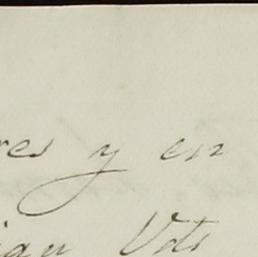 res y en
igan Vds